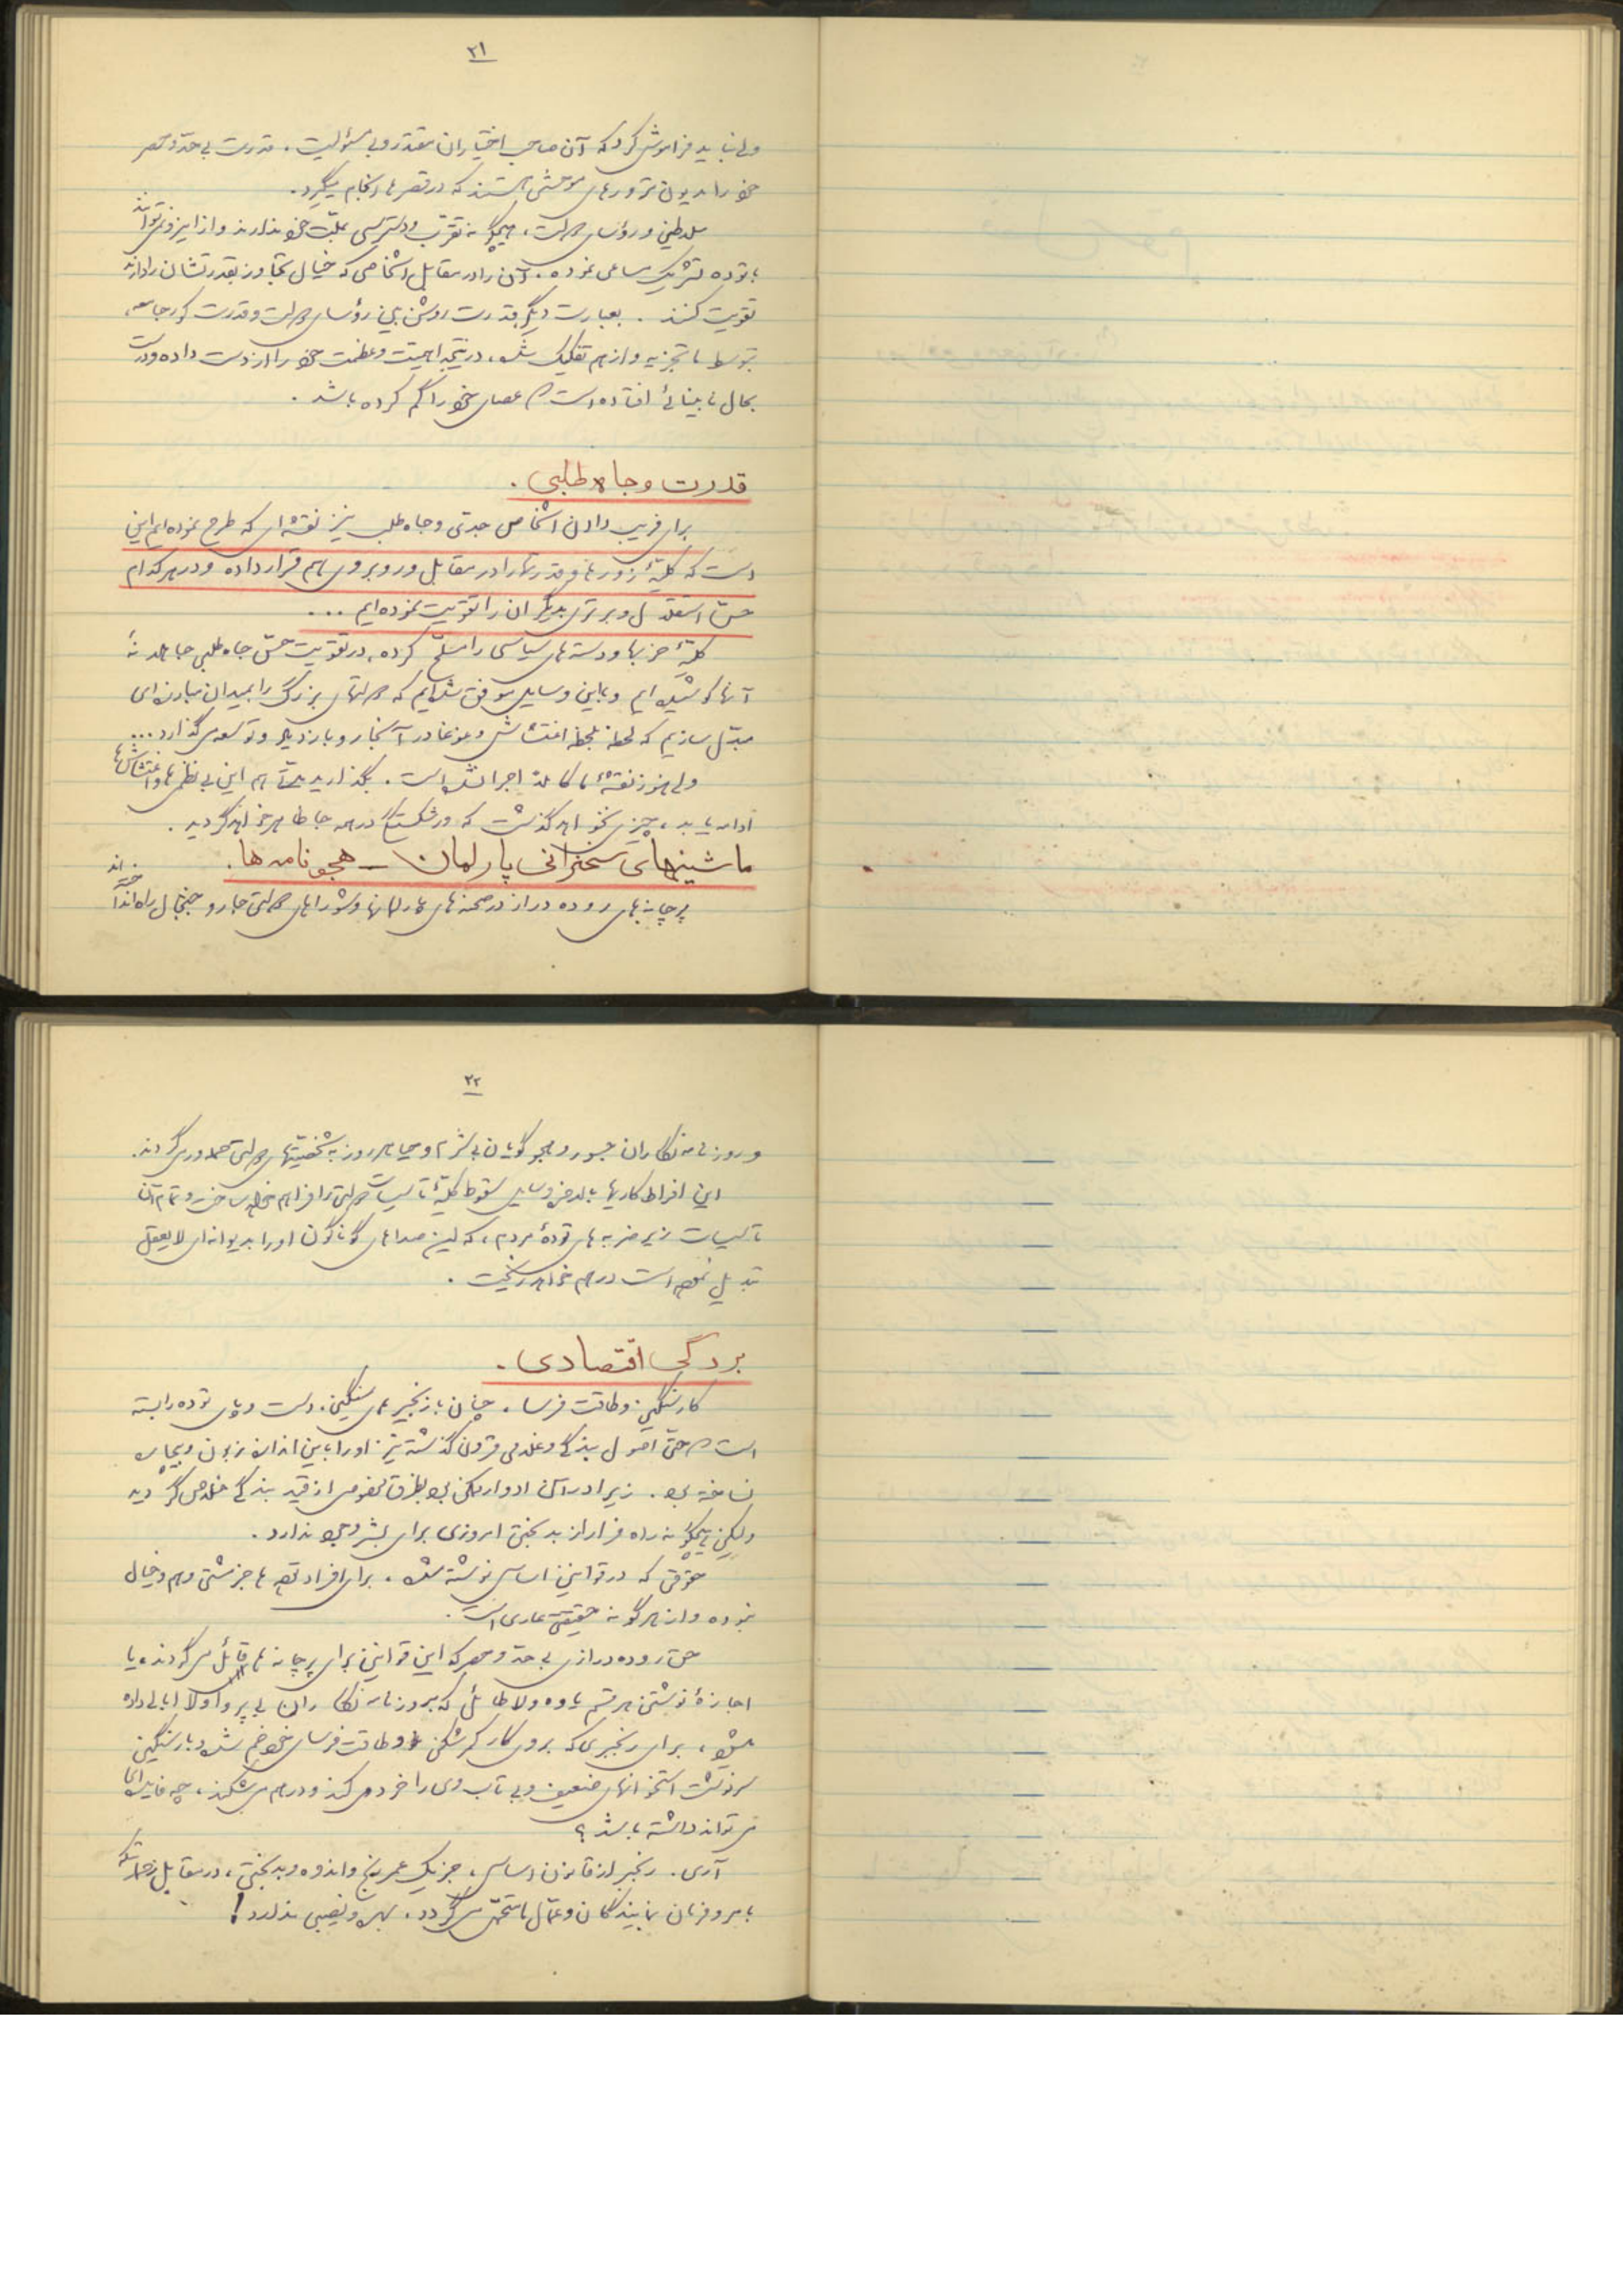 ۲۱
ولی نباید فراموش کرد که آن صاحب اختیاران مقتدر و بی مسئولیت، قدرت بی حد و حصر
خود را مدیون ترورهای موحشی هستند که در قصرها انجام میگیرد.
سلاطین و رؤسای دولت، هیچگونه تقرب و دسترسی بملت خود ندارند و از اینرو نمی توانند
با توده تشریک مساعی نموده، آن را در مقابل اشخاصی که خیال تجاوز بقدرتشان را دارند
تقویت کنند. بعبارت دیگر قدرت روشن بین رؤسای دولت و قدرت کور جامعه،
توسط ما تجزیه و از هم تفکیک شده، در نتیجه اهمیت و عظمت خود را از دست داده و درست
بحال نابینائی افتاده است که عصای خود را گم کرده باشد.
قدرت و جاه طلبی.
برای فریب دادن اشخاص جدی و جاه طلب نیز نقشه ای که طرح نموده ایم این
است که کلیهٔ زورها و قدرتها را در مقابل و روبروی هم قرار داده و در هر کدام
حس استقلال و برتری بدیگران را تقویت نموده ایم ...
کلیهٔ حزبها و دسته های سیاسی را مسلح کرده، در تقویت حس جاه طلبی جاهلانهٔ
آنها کوشیده ایم و باین وسایل موفق شده ایم که دولتهای بزرگ را بمیدان مبارزه ای
مبدل سازیم که لحظه بلحظه اغتشاش و غوغا در آنجا رو بازدیاد و توسعه می گذارد...
ولی هنوز نقشهٔ ما کاملاً اجرا نشده است. بگذارید مدتی هم این بی نظمی ها و اغتشاش ها
ادامه یابد، چیزی نخواهد گذشت که ورشکستگی در همه جا ظاهر خواهد گردید.
ماشینهای سخنرانی پارلمان - هجو نامه ها.
پرچانه های روده دراز در صحنه های پارلمانها و شوراهای دولتی جار و جنجال راه انداخته اند
۲۲
و روزنامه نگاران جسور و هجو گویان بی شرم و حیا هر روز به شخصیتهای دولتی حمله ور می گردند.
این افراط کاریها بالاخره وسایل سقوط کلیهٔ تأسیسات دولتی را فراهم خواهد ساخت و تمام آن
تأسیسات زیر ضربه های تودهٔ مردم، که این صداهای گوناگون او را بدیوانه ای لایعقل
تبدیل نموده است درهم خواهد ریخت.
بردگی اقتصادی.
کار سنگین و طاقت فرسا، چنان با زنجیرهای سنگین، دست و پای توده را بسته
است که حتی اصول بندگی و غلامی قرون گذشته نیز او را باین اندازه زبون و بیچاره
نساخته بود. زیرا در آن ادوار ممکن بود بطرق مخصوصی از قید بندگی خلاص گردید
ولیکن هیچگونه راه فرار از بدبختی امروزی برای بشر وجود ندارد.
حقوقی که در قوانین اساسی نوشته شده، برای افراد توده ها جز مشتی وهم و خیال
نبوده و از هر گونه حقیقتی عاری است.
حق روده درازی بی حد و حصر که این قوانین برای پرچانه ها قائل می گردند، و یا
اجازهٔ نوشتن هر قسم یاوه و لاطائل که بروزنامه نگاران بی پروا و لاابالی داده
میشود، برای رنجبری که بروی کار کمرشکن و طاقت فرسای خود خم شده و بار سنگین
سرنوشت استخوانهای ضعیف و بی تاب وی را خرد می کند و درهم می شکند، چه فایده ای
می تواند داشته باشد؟
آری. رنجبر از قانون اساسی، جز یک عمر رنج و اندوه و بدبختی، در مقابل زحماتیکه
بامر و فرمان نمایندگان و عمال ما متحمل می گردد، بهره و نصیبی ندارد!